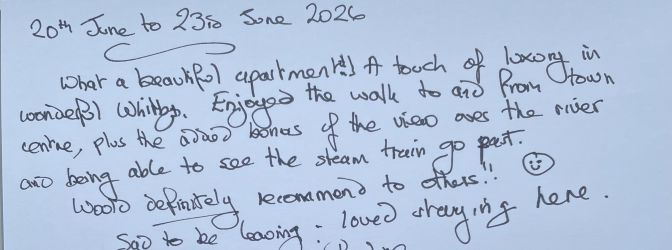 20th June to 23rd June 2026
What a beautiful apartment!! A touch of luxury in
wonderful Whitby. Enjoyed the walk to and from town
centre, plus the added bonus of the view over the river
and being able to see the steam train go past.
Would definitely recommend to others!!
Sad to be leaving : loved staying here.